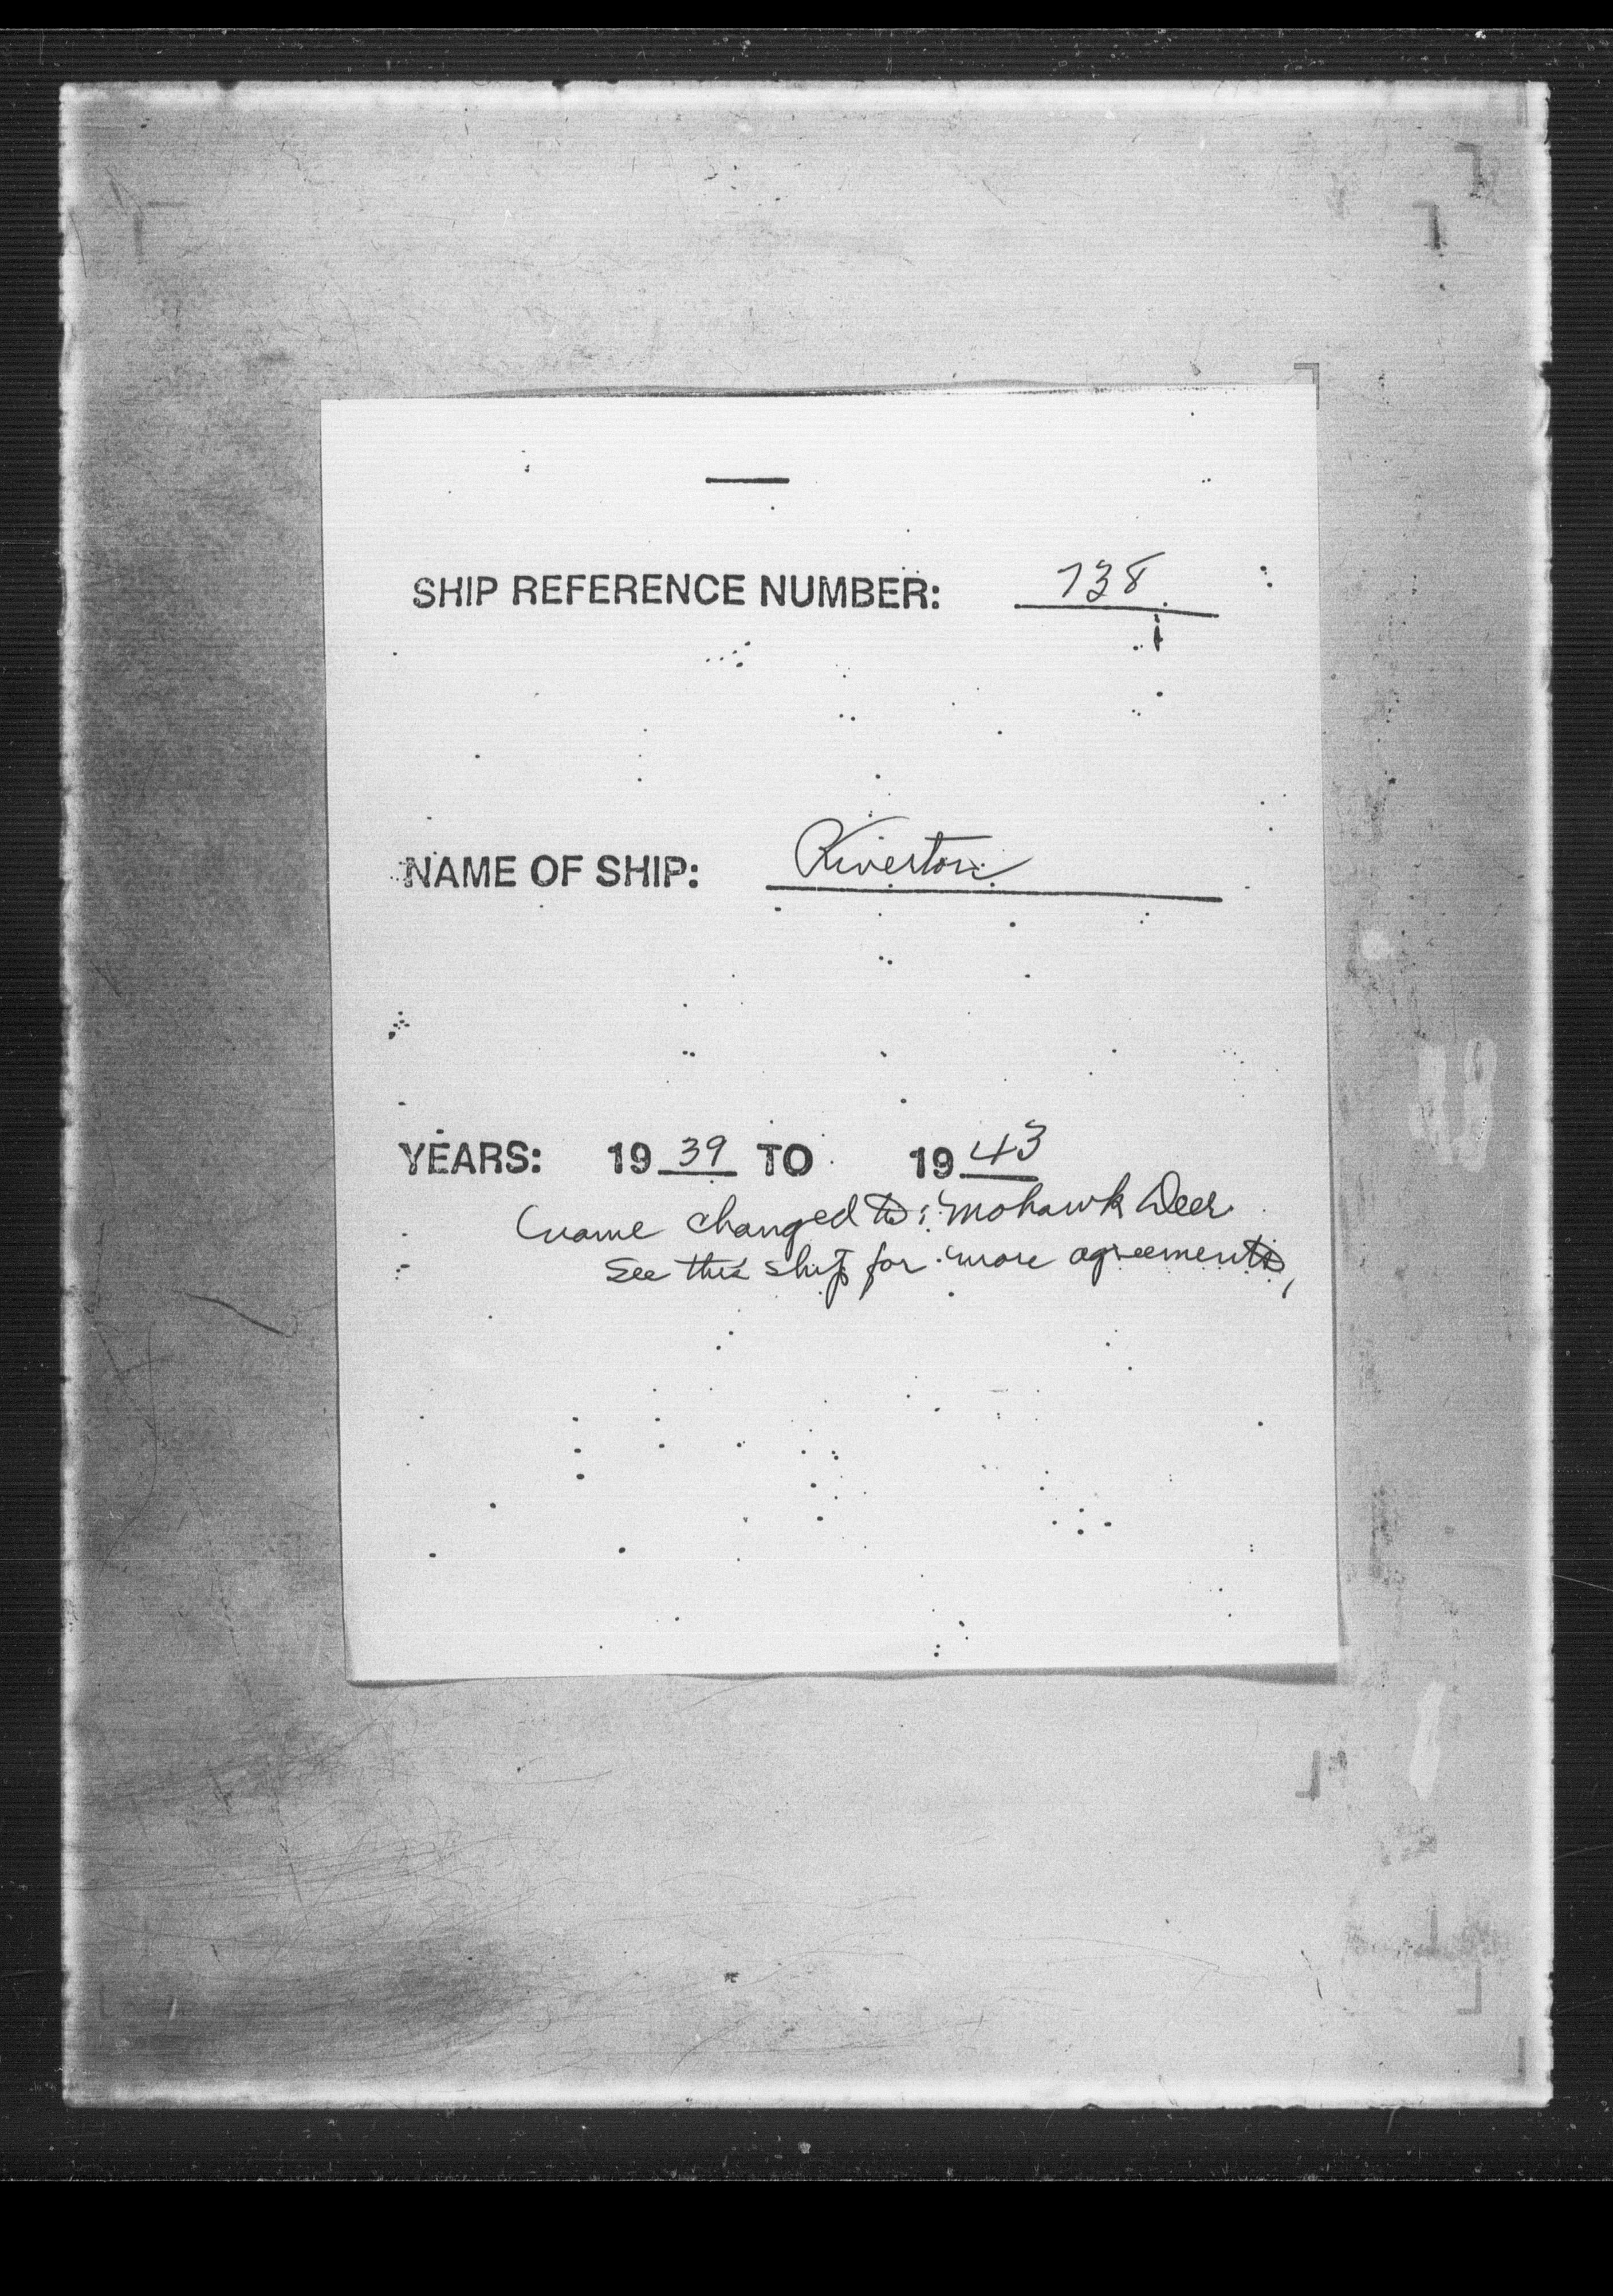 SHIP REFERENCE NUMBER: 738
NAME OF SHIP: Riverton
YEARS: 19 39 TO 19 43
(name changed to: Mohawk Deer
See this ship for more agreements,